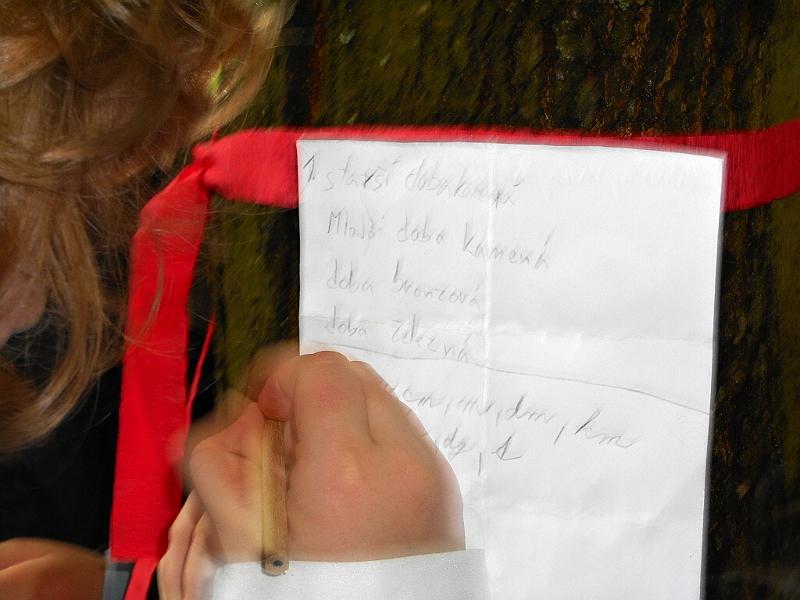 1. starší doba kamená
Mladší doba kamená
doba bronzová
doba železná
cm, m, dm, km
dg, t